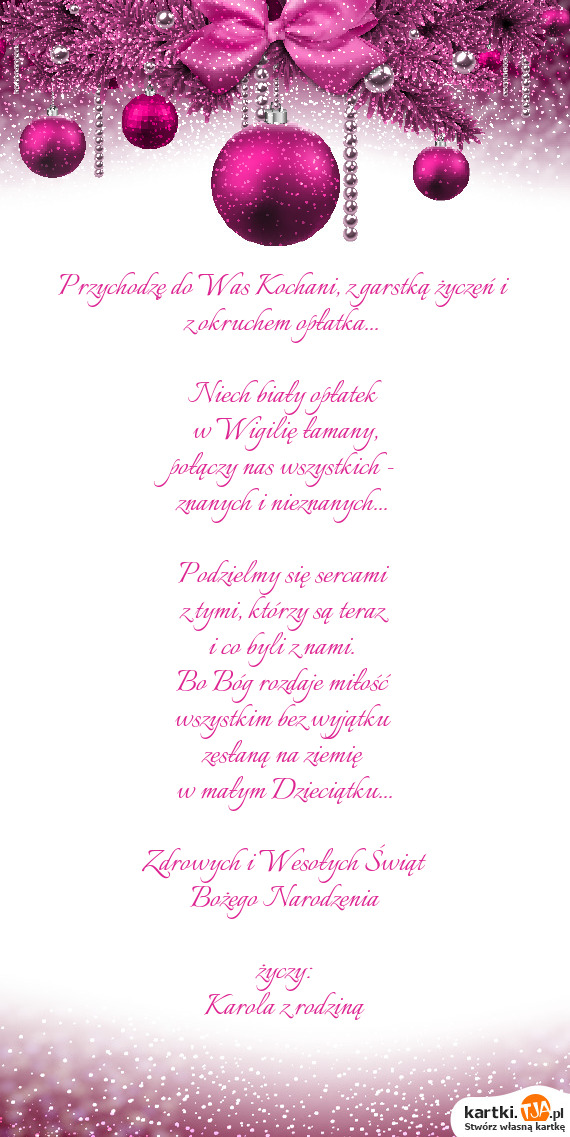 Przychodzę do Was Kochani, z garstką życzeń i
z okruchem opłatka...
Niech biały opłatek
w Wigilię łamany,
połączy nas wszystkich -
znanych i nieznanych...
Podzielmy się sercami
z tymi, którzy są teraz
i co byli z nami.
Bo Bóg rozdaje miłość
wszystkim bez wyjątku
zesłaną na ziemię
w małym Dzieciątku...
Zdrowych i Wesołych Świąt
Bożego Narodzenia
życzy:
Karola z rodziną
kartki.TJA.pl
Stwórz własną kartkę